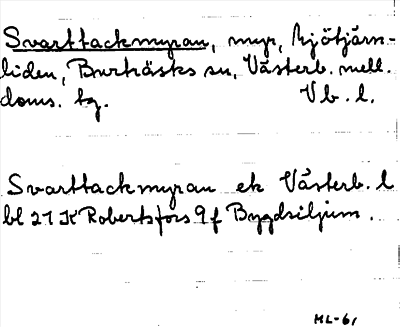 Svarttackmyran, myr, Mjötjärn-
liden, Burträsks sn, Västerb. mell.
doms. hg. Vb. l.
Svarttackmyran ek Västerb. l
bl 21 K Robertsfors 9 f Bygdsiljum.
ML-61